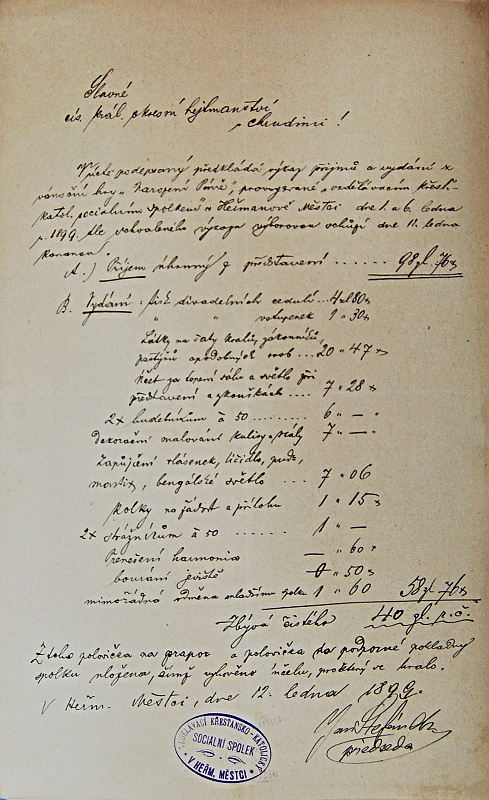 Slavné
cís. král. okresní hejtmanství
v Chrudimi!
V úctě podepsaný předkládá výkaz příjmů a vydání z
vánoční hry „Narození Páně", provozované „vzdělávacím křest.
katol. sociálním spolkem" v Heřmanově Městci dne 1. a 6. ledna
r. 1899. dle schváleného výkazu výborovou schůzí dne 11. ledna
konanou.
A.) Příjem úhrnný z představení ...... 98 zl. 76 x
B. Vydání: tisk divadelních cedulí ... 4 zl 80 x
" " vstupenek 1 " 30 x
Látky na šaty králů, zákonníků,
pastýřů a podobných osob ... 20 " 47 x
Účet za topení sálu a světlo při
představení a zkouškách .... 7 " 28 x
2x hudebníkům à 50 ........ 6 " — "
Dekorační malování kulisy a skály 7 " — "
Zapůjčení vlásenek, líčidlo, pudr,
mastix, bengálské světlo ... 7 " 06
Kolky na žádost a přílohu 1 " 15 x
2x strážníkům à 50 ........ 1 " —
Přenešení harmonia — " 60 x
bourání jeviště 0 " 50 x
mimořádná odměna 1 " 60 58 zl. 76 x
Zbývá čistého 40 zl. r. č.
Z toho polovička na prapor a polovička do podporné pokladny
spolku uložena, čímž vyhověno účelu,
V Heřm. Městci, dne 12. ledna 1899.
Jan Štefánek
předseda
VZDĚLAVACÍ KŘESŤANSKO-KATOLICKÝ
SOCIÁLNÍ SPOLEK
V HEŘM. MĚSTCI